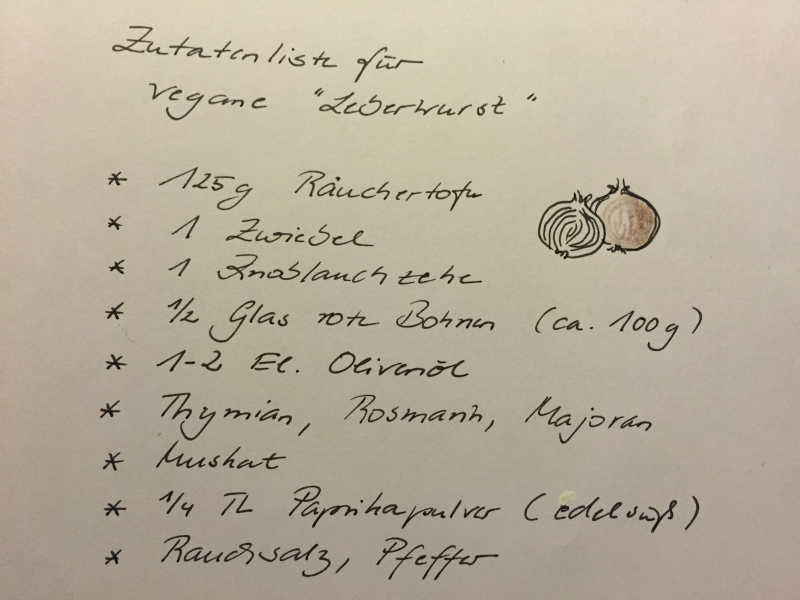 Zutatenliste für
vegane "Leberwurst"
* 125g Räuchertofu
* 1 Zwiebel
* 1 Knoblauchzehe
* 1/2 Glas rote Bohnen (ca. 100g)
* 1-2 El. Olivenöl
* Thymian, Rosmarin, Majoran
* Muskat
* 1/4 TL Paprikapulver (edelsüß)
* Rauchsalz, Pfeffer